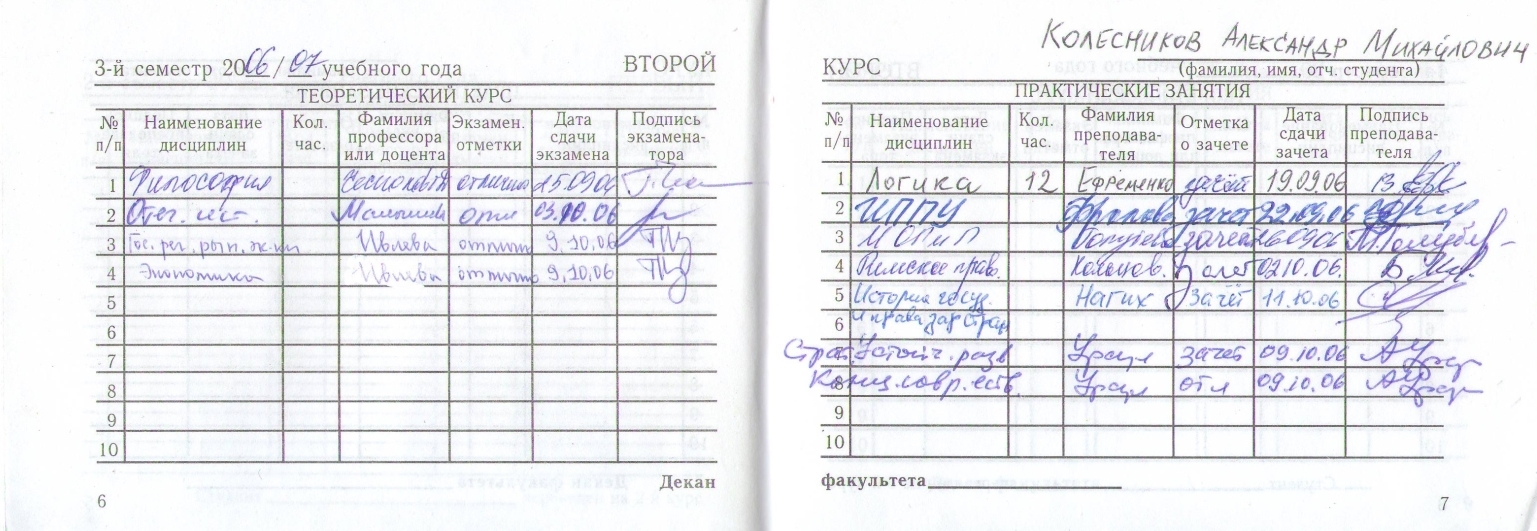 3-й семестр 2006/07 учебного года ВТОРОЙ
ТЕОРЕТИЧЕСКИЙ КУРС
№ п/п Наименование дисциплин Кол. час. Фамилия профессора или доцента Экзамен. отметки Дата сдачи экзамена Подпись экзамена-тора
1 Философия отлично 15.09.06
2 Отеч. ист. отл 03.10.06
3 Гос. рег. рын. эк-ки Ивлева отлично 9.10.06
4 Экономика Ивлева отлично 9.10.06
5
6
7
8
9
10
Декан
6
Колесников Александр Михайлович
КУРС (фамилия, имя, отч. студента)
ПРАКТИЧЕСКИЕ ЗАНЯТИЯ
№ п/п Наименование дисциплин Кол. час. Фамилия преподава-теля Отметка о зачете Дата сдачи зачета Подпись преподава-теля
1 Логика 12 Ефременко зачёт 19.09.06
2 ИППУ зачет 22.09.06
3 МОПиП зачет 26.09.06
4 Римское право. зачет 02.10.06.
5 История госуд. Нагих Зачёт 11.10.06
6 и права зар стран
7 Страт. Устойч. разв зачет 09.10.06
8 Конц. совр. еств. отл 09.10.06
9
10
факультета
7